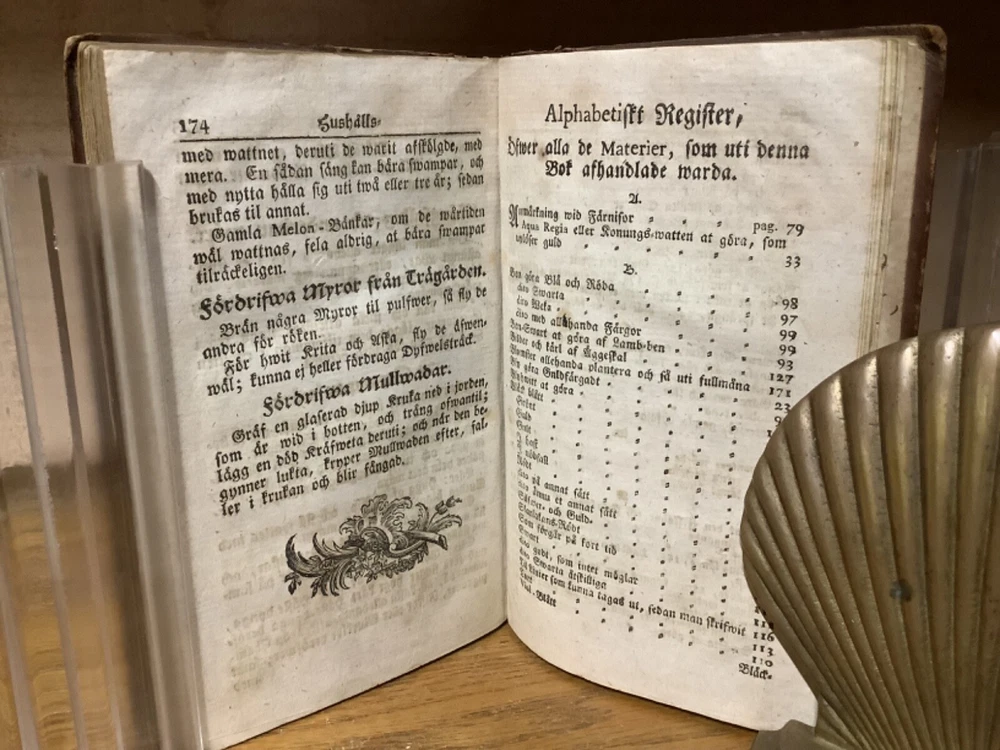 174 Hushålls-
med wattnet, deruti de warit afskölgde, med
mera. En sådan säng kan bära swampar, och
med nytta hålla sig uti twå eller tre år; sedan
brukas til annat.
Gamla Melon-Bänkar, om de wårtiden
wäl wattnas, fela aldrig, at bära swampar
tilräckeligen.
Fördrifwa Myror från Trägården.
Brän några Myror til pulfwer, så fly de
andra för röken.
För hwit Krita och Aska, fly de äfwen-
wäl; kunna ej heller fördraga Dyfwelsträck.
Fördrifwa Mullwadar.
Gräf en glaserad djup Kruka ned i jorden,
som är wid i botten, och trång ofwantil;
lägg en död Kräfweta deruti; och när den be-
gynner lukta, kryper Mullwaden efter, fal-
ler i krukan och blir fångad.
Alphabetiskt Register,
öfwer alla de Materier, som uti denna
Bok afhandlade warda.
A.
Anmärkning wid Färnisor pag. 79
Aqua Regia eller Konungs-watten at göra, som
uplöser guld 33
B.
Ben göra Blå och Röda 98
dito Swarta 97
dito Weka 99
dito med allehanda Färgor 99
Ben-Swart at göra af Lamb-ben 93
kärl af Äggeskal 127
Blomster allehanda plantera och så uti fullmåna 171
göra Guldfärgadt 23
at göra
blått
Grönt
Guld
Gult
I hast
I nödfall
Rödt
dito på annat sätt
dito ännu et annat sätt
Silfwer- och Guld-
Som förgår på kort tid
Swart
dito godt, som intet möglar
dito Swarta åtskilliga
som kunna tagas ut, sedan man skrifwit 116
113
110
Bläck-